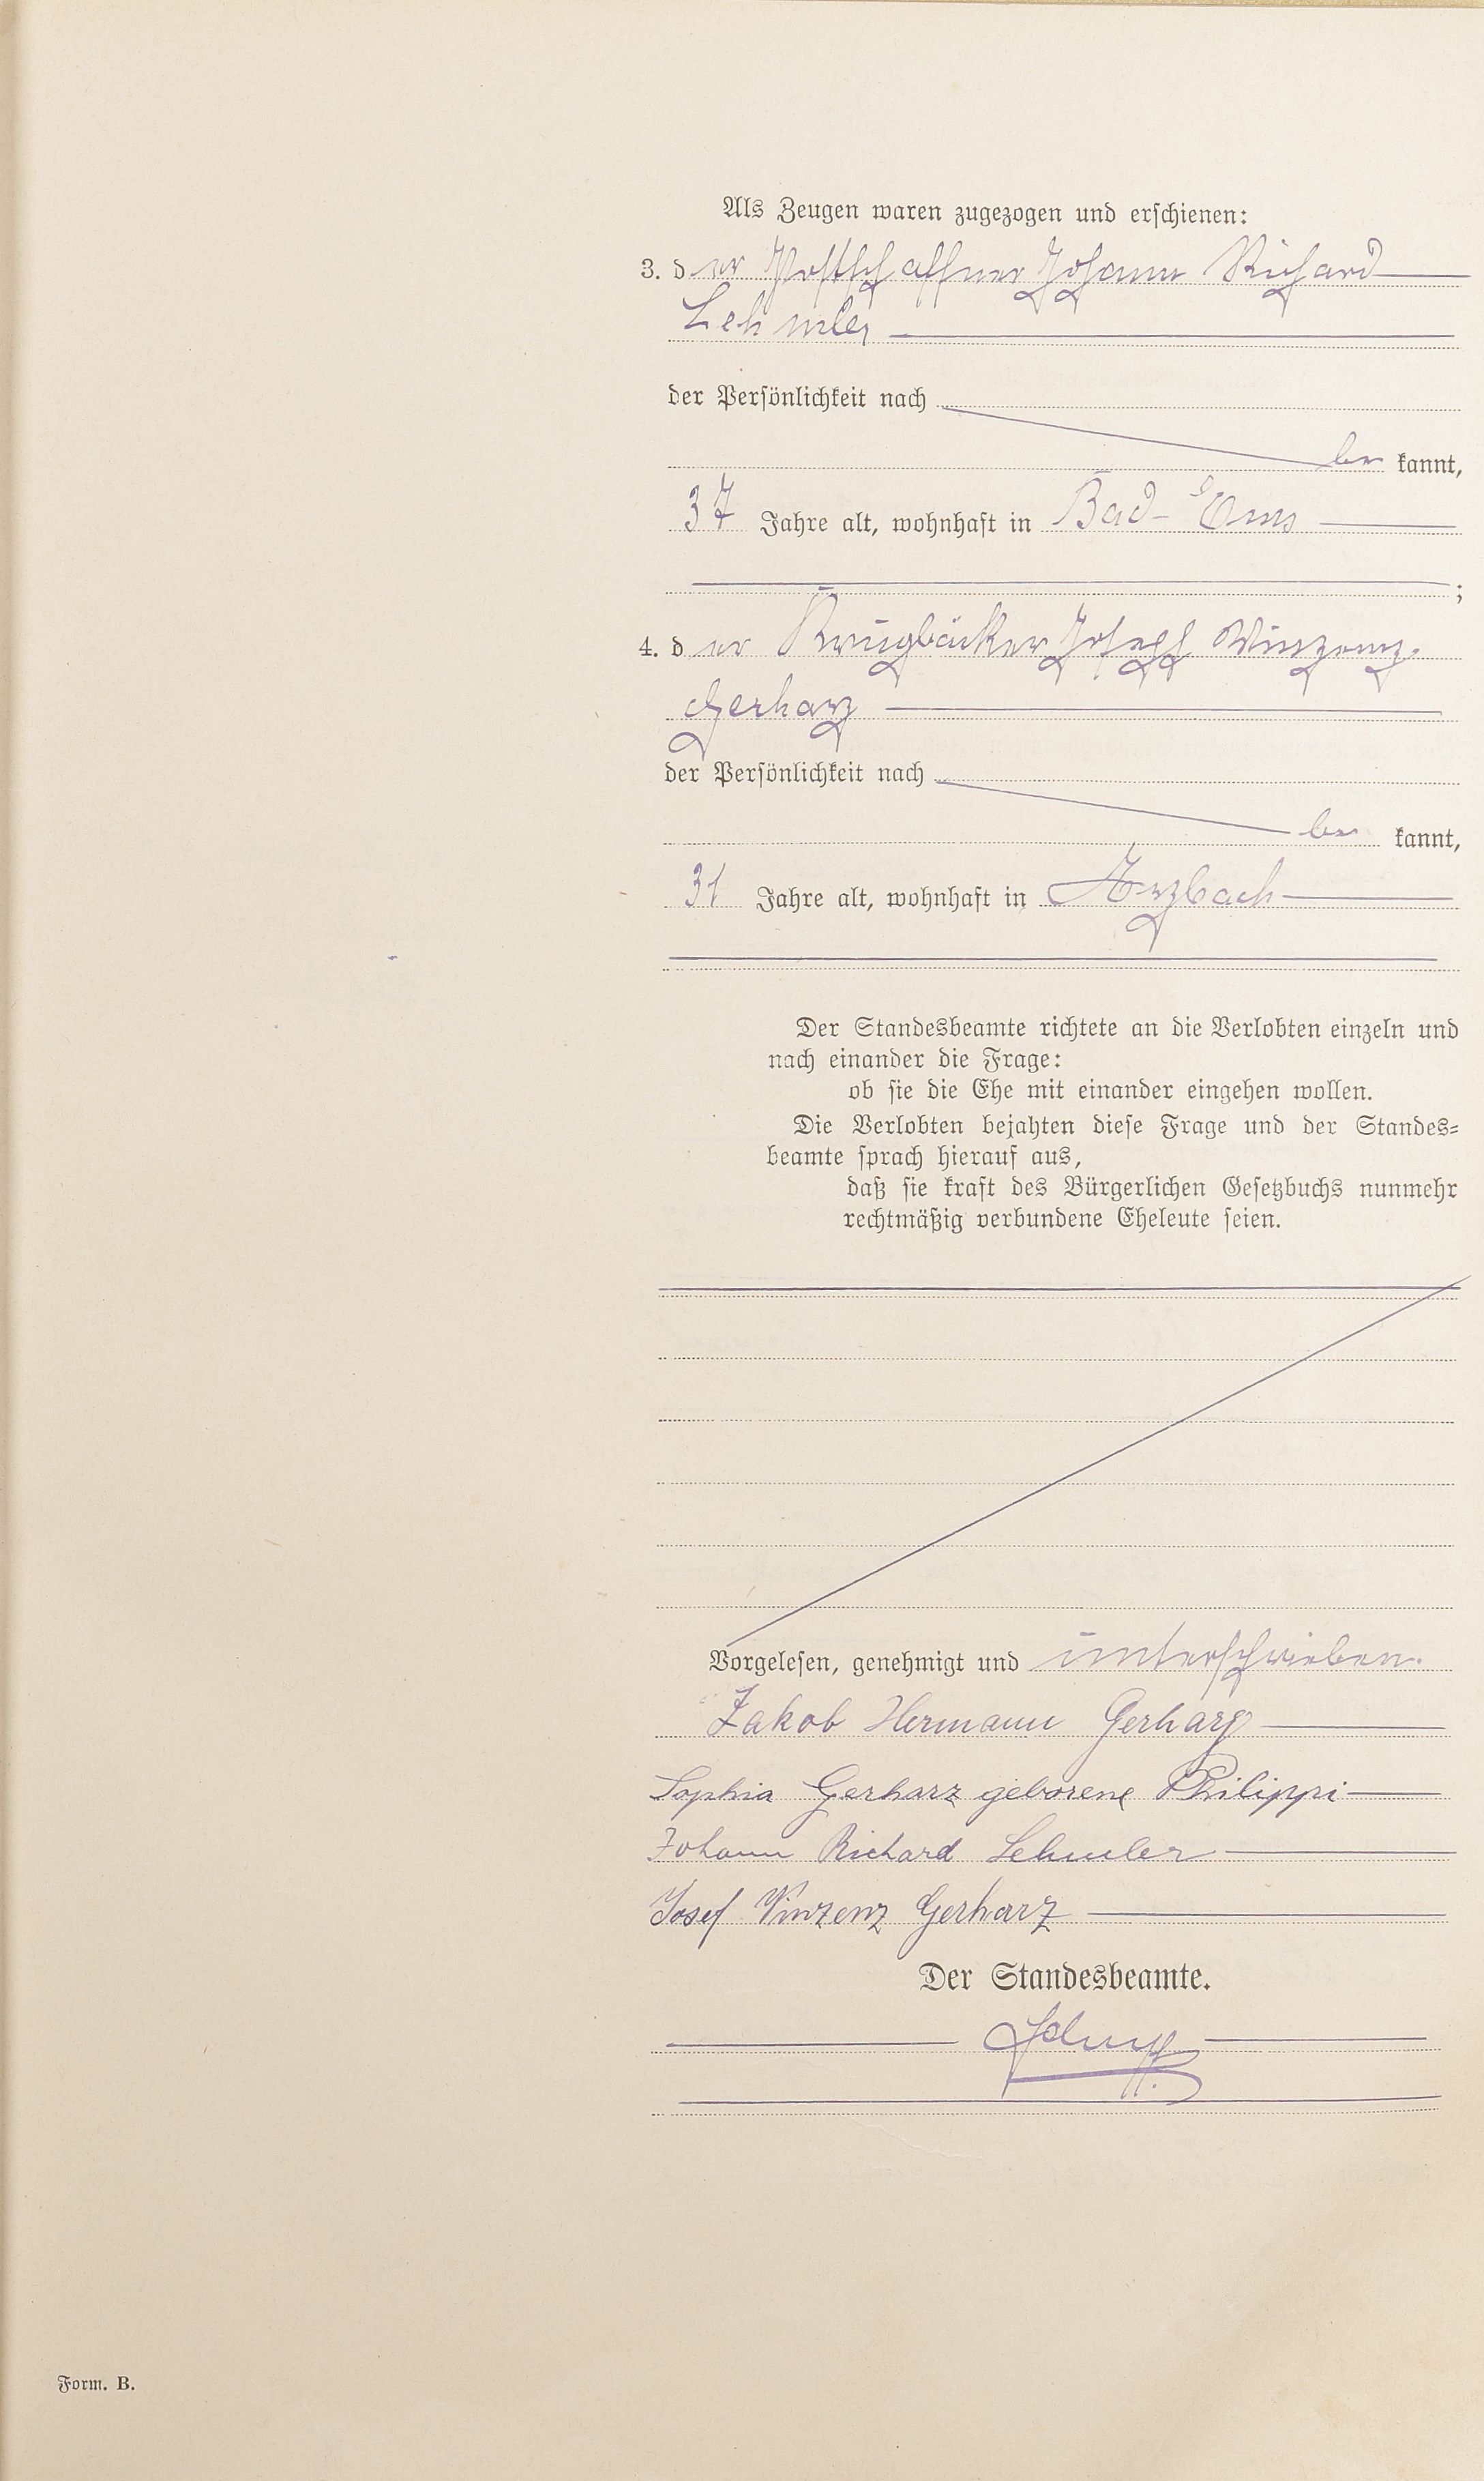 Als Zeugen waren zugezogen und erschienen:
3. der Postschaffner Johann Richard
Lehmler
der Persönlichkeit nach
be kannt,
37 Jahre alt, wohnhaft in Bad-Ems
;
4. der Krugbäcker Joseph Vinzenz
Gerharz
der Persönlichkeit nach
be kannt,
31 Jahre alt, wohnhaft in Arzbach
Der Standesbeamte richtete an die Verlobten einzeln und
nach einander die Frage:
ob sie die Ehe mit einander eingehen wollen.
Die Verlobten bejahten diese Frage und der Standes-
beamte sprach hierauf aus,
daß sie kraft des Bürgerlichen Gesetzbuchs nunmehr
rechtmäßig verbundene Eheleute seien.
Vorgelesen, genehmigt und unterschrieben.
Jakob Hermann Gerharz
Sophia Gerharz geborene Philippi
Johann Richard Lehmler
Josef Vinzenz Gerharz
Der Standesbeamte.
Form. B.